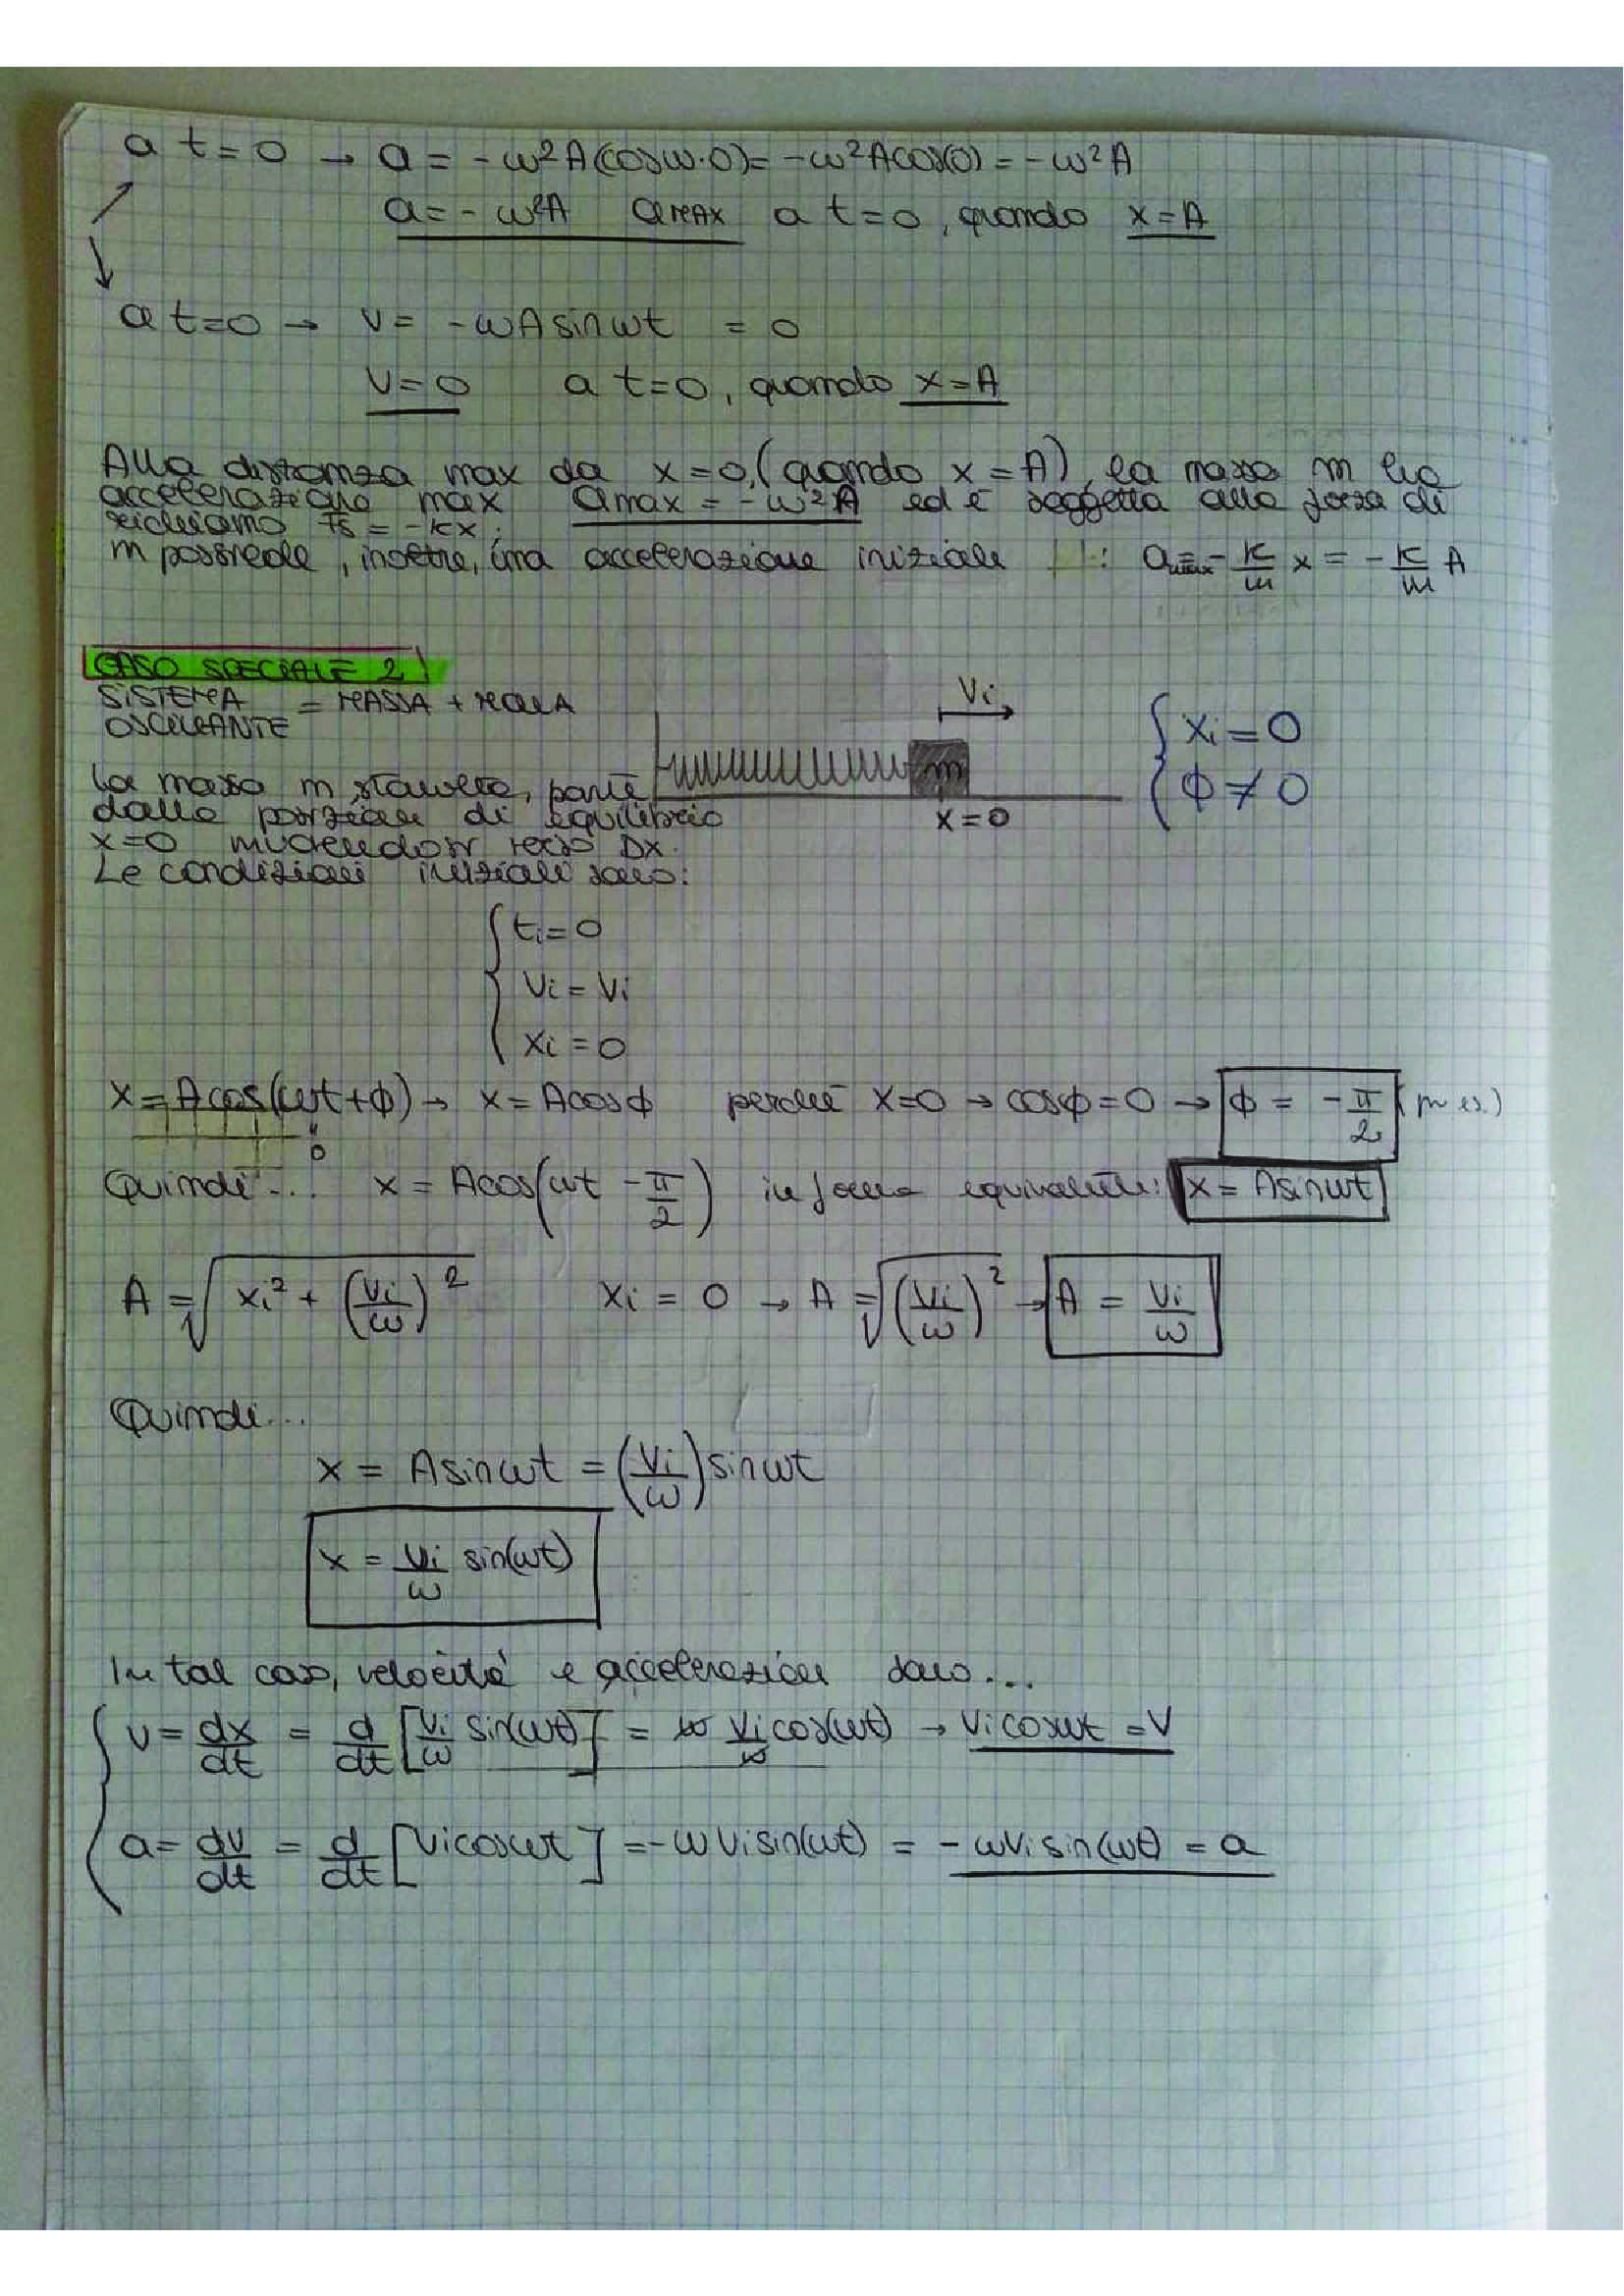 a t=0 → a = -ω²A(cosω·0)= -ω²Acos(0) = -ω²A
a = -ω²A aMAX a t=0, quando x=A
a t=0 → v= -ωAsinωt = 0
v=0 a t=0, quando x=A
Alla distanza max da x=0,(quando x=A), la massa m ha
accelerazione max amax = -ω²A ed è soggetta alla forza di
richiamo Fs = -kx.
m possiede, inoltre, una accelerazione iniziale : amax=-k/m x = -k/m A
CASO SPECIALE 2
SISTEMA = MASSA + MOLLA
OSCILLANTE
Vi
xi=0
ϕ≠0
m
x=0
La massa m stavolta, parte
dalla posizione di equilibrio
x=0 muovendosi verso Dx.
Le condizioni iniziali sono:
ti=0
vi=vi
xi=0
x=Acos(ωt+ϕ) → x=Acosϕ perché x=0 → cosϕ=0 → ϕ = -π/2 (p es.)
0
Quindi... x = Acos(ωt -π/2) in forma equivalente: x=Asinωt
A=√xi²+(vi/ω)² xi=0 → A=√(vi/ω)² → A = vi/ω
Quindi...
x = Asinωt = (vi/ω)sinωt
x = vi/ω sin(ωt)
In tal caso, velocità e accelerazioni sono...
v=dx/dt = d/dt [vi/ω sin(ωt)] = ω vi/ω cos(ωt) → vicosωt =v
a=dv/dt = d/dt [vicosωt] =-ωvisin(ωt) = -ωvisin(ωt) = a